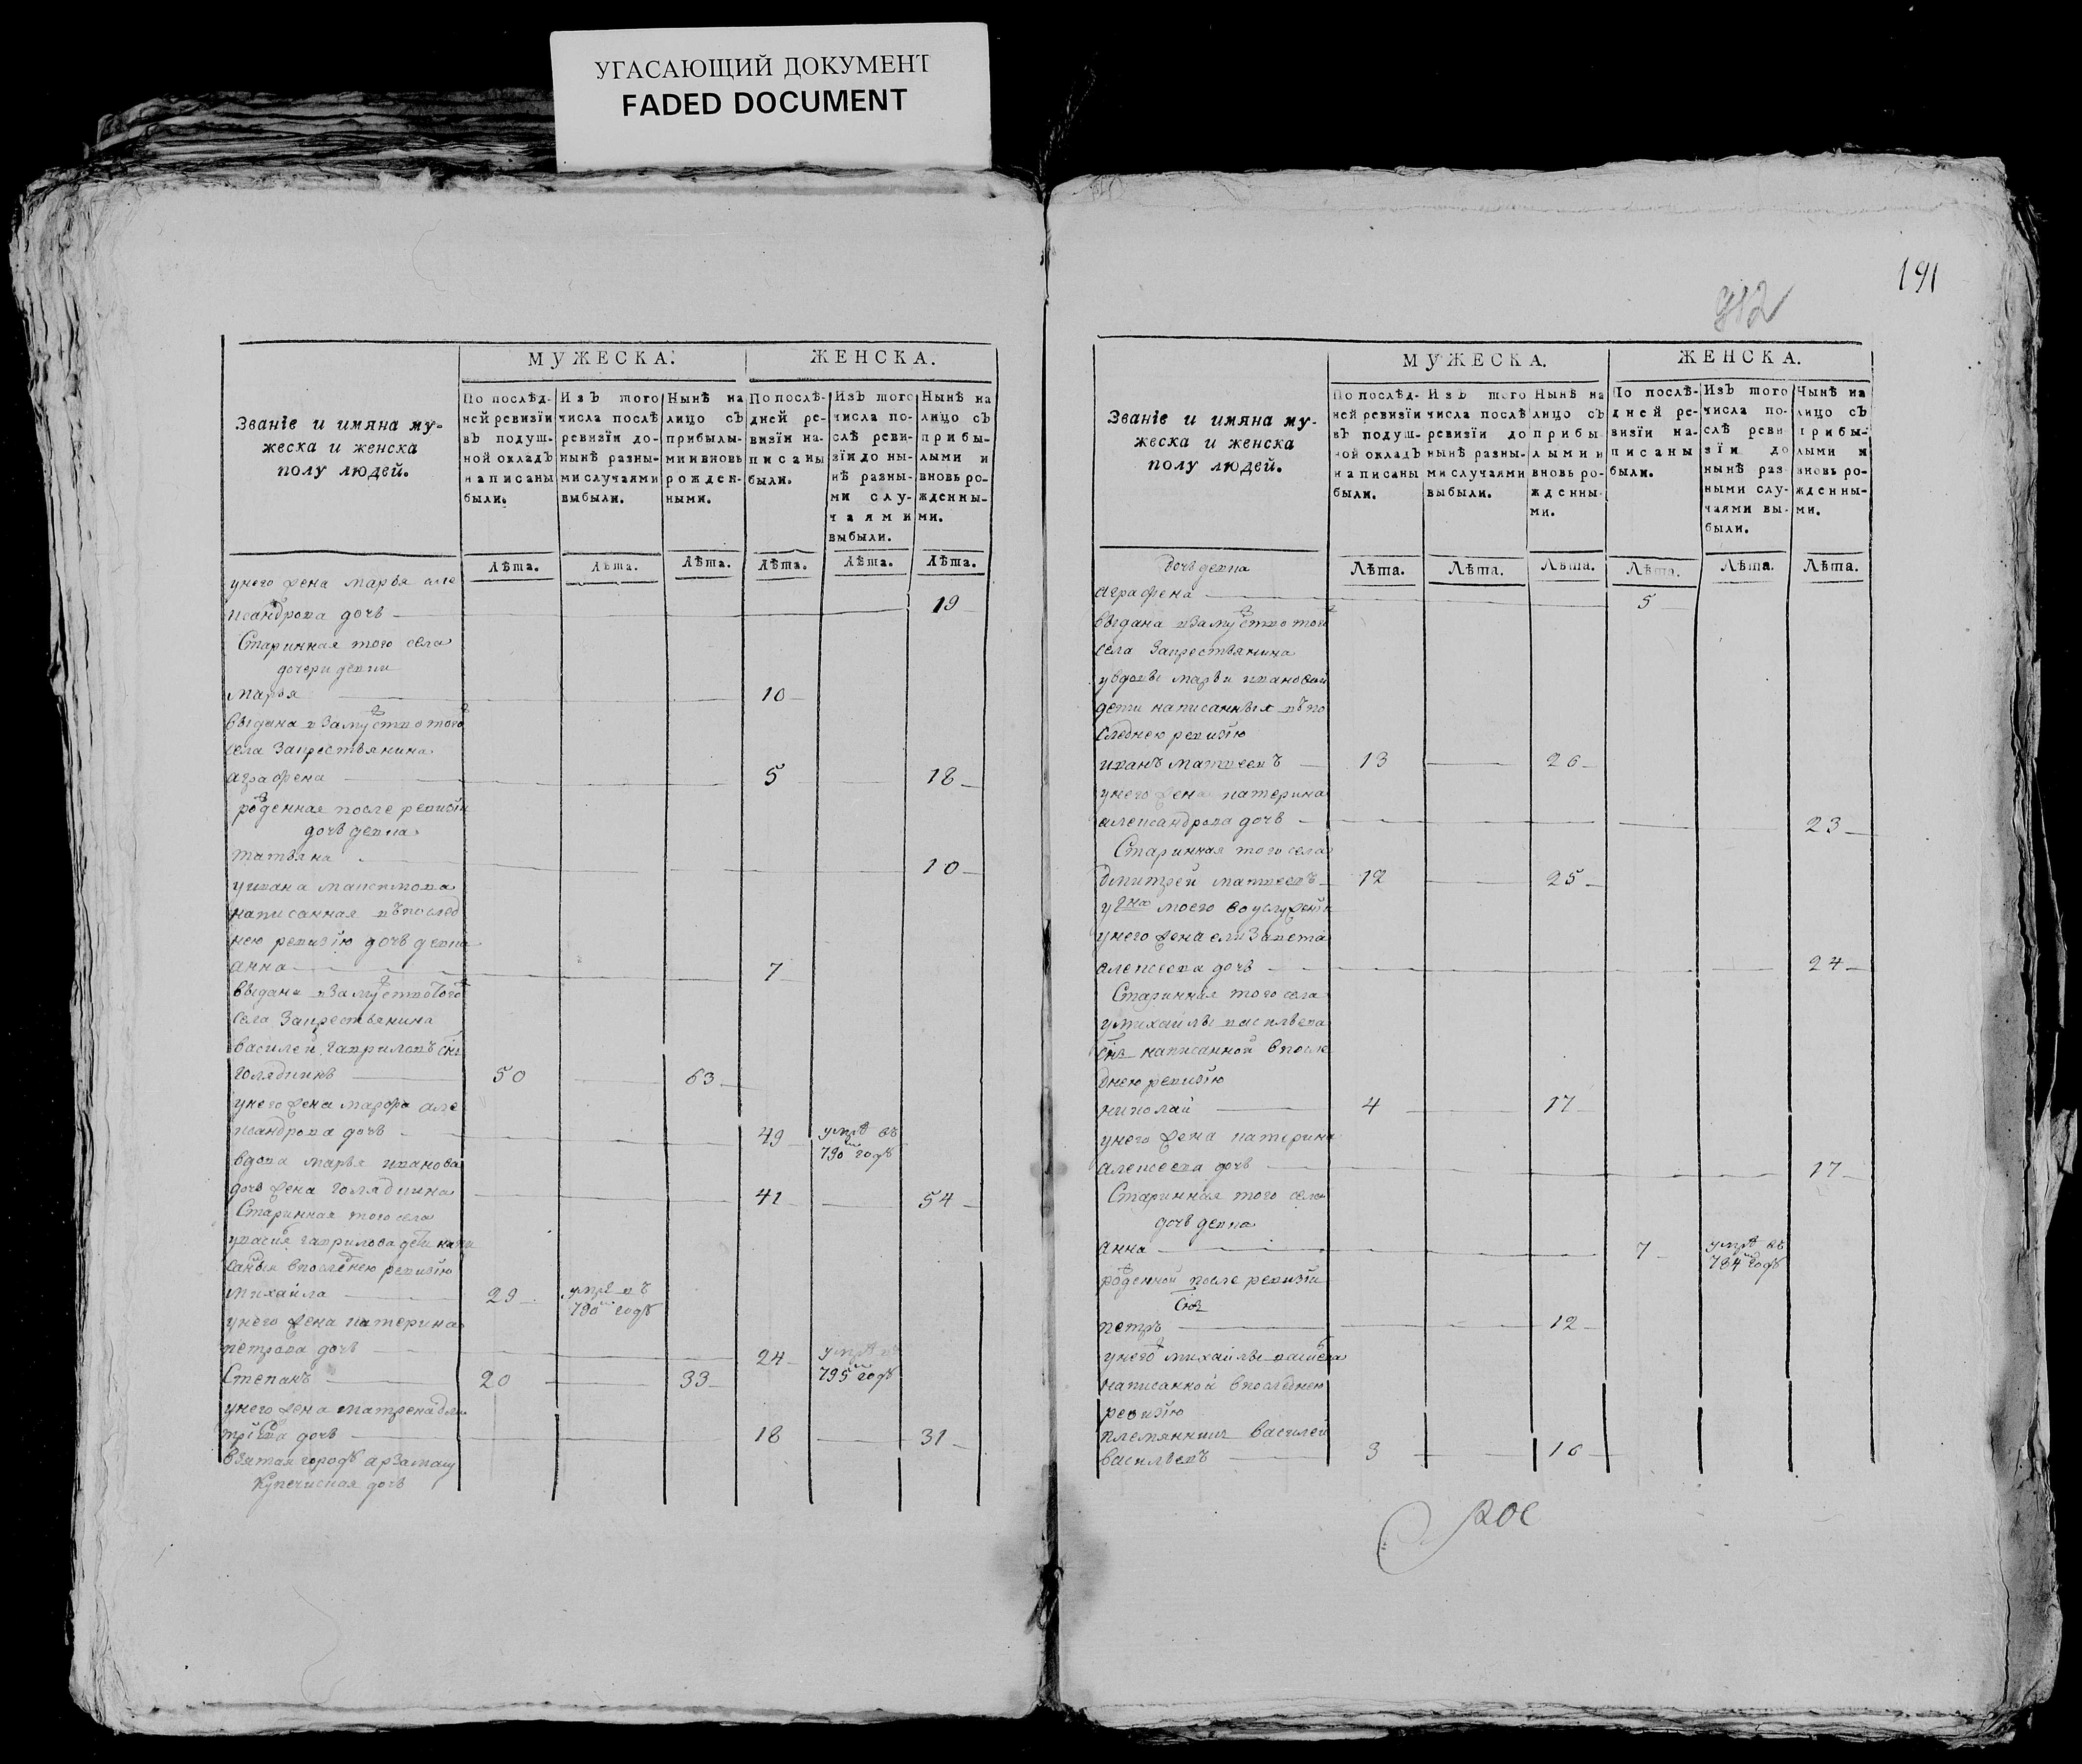 УГАСАЮЩИЙ ДОКУМЕНТ
FADED DOCUMENT
МУЖЕСКА.
ЖЕНСКА.
Званіе и имяна му-
жеска и женска
полу людей.
По послѣд-
ней ревизїи
въ подуш-
ной окладъ
написаны
были.
Изъ того
числа послѣ
ревизїи до-
нынѣ разны-
ми случаями
выбыли.
Нынѣ на
лицо съ
прибылы-
ми и вновь
рожден-
ными.
По послѣ-
дней ре-
визїи на-
писаны
были.
Изъ того
числа по-
слѣ реви-
зїи до ны-
нѣ разны-
ми слу-
чаями
выбыли.
Нынѣ на
лицо съ
прибы-
лыми и
вновь ро-
жденны-
ми.
Лѣта. Лѣта. Лѣта. Лѣта. Лѣта. Лѣта.
унего жена марья але
ксандрова дочь 19
Старинная того села
дочери девки
марья 10
выдана взамуство того
села закрестьянина
аграфена 5 18
рожденная после ревизїи
дочь девка
татьяна 10
уивана максимова
написанная въпослед
нею ревизїю дочь девка
анна 7
выдана взамуство того
села закрестьянина
василей гавриловъ снъ
голядкинъ 50 63
унего жена марфа але
ксандрова дочь 49 умре въ
790м годѣ
вдова марья иванова
дочь жена голядкина 41 54
Старинная того села
увасил гаврилова дети напи
саныя впоследнею ревизїю
михаила 29 умре въ
790м годѣ
унего жена катерина
петрова дочь 24 умре въ
795м годѣ
Степанъ 20 33
унего жена матрена дми
трїева дочь 18 31
взятая городѣ арзамащ
купеческая дочь
191
МУЖЕСКА.
ЖЕНСКА.
Званіе и имяна му-
жеска и женска
полу людей.
По послѣд-
ней ревизїи
въ подуш-
ной окладъ
написаны
были.
Изъ того
числа послѣ
ревизїи до
нынѣ разны-
ми случаями
выбыли.
Нынѣ на
лицо съ
прибы
лыми и
вновь ро-
жденны-
ми.
По послѣ-
дней ре-
визїи на-
писаны
были.
Изъ того
числа по-
слѣ реви
зїи до
нынѣ раз
ными слу-
чаями вы-
были.
Нынѣ на
лицо съ
прибы-
лыми и
вновь ро-
жденны-
ми.
Лѣта. Лѣта. Лѣта. Лѣта. Лѣта. Лѣта.
дочь девка
аграфена 5
выдана взамуство того
села закрестьянина
увдовы марьи ивановой
дети написанныя въпо
следнею ревизїю
иванъ матвеевъ 13 26
унего жена катерина
александрова дочь 23
Старинная того села
дмитрей матвеевъ 12 25
у гна моего воуслуженїи
унего жена елизавета
алексеева дочь 24
Старинная того села
умихаилы васильева
снъ написанной впосле
днею ревизїю
николай 4 17
унего жена катерина
алексеева дочь 17
Старинная того села
дочь девка
анна 7 умре въ
784м годѣ
рожденной после ревизїи
снъ
петръ 12
унего михаилы васильева
написанной впоследнею
ревизїю
племянникъ василей
васильевъ 3 16